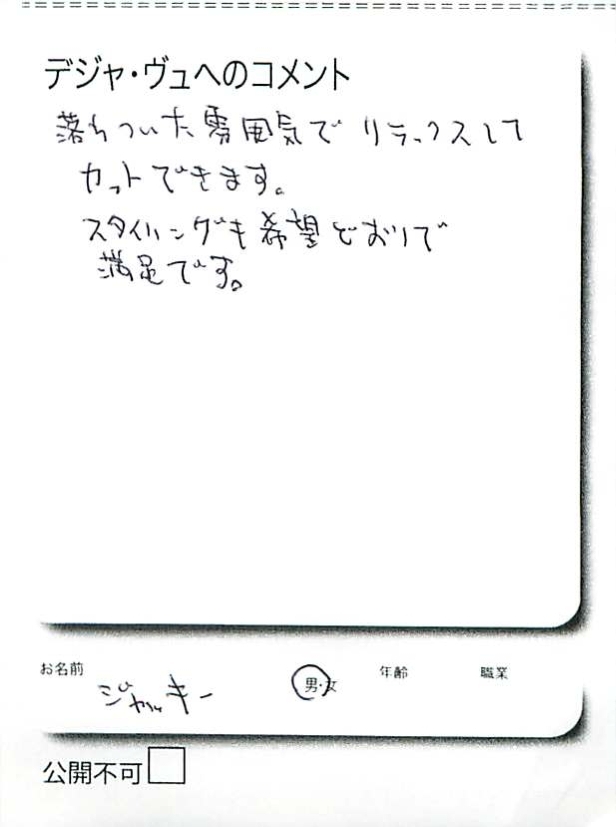 デジャ・ヴュへのコメント
落ちついた雰囲気でリラックスして
カットできます。
スタイリングも希望どおりで
満足です。
お名前 ジャッキー 男・女 年齢 職業
公開不可